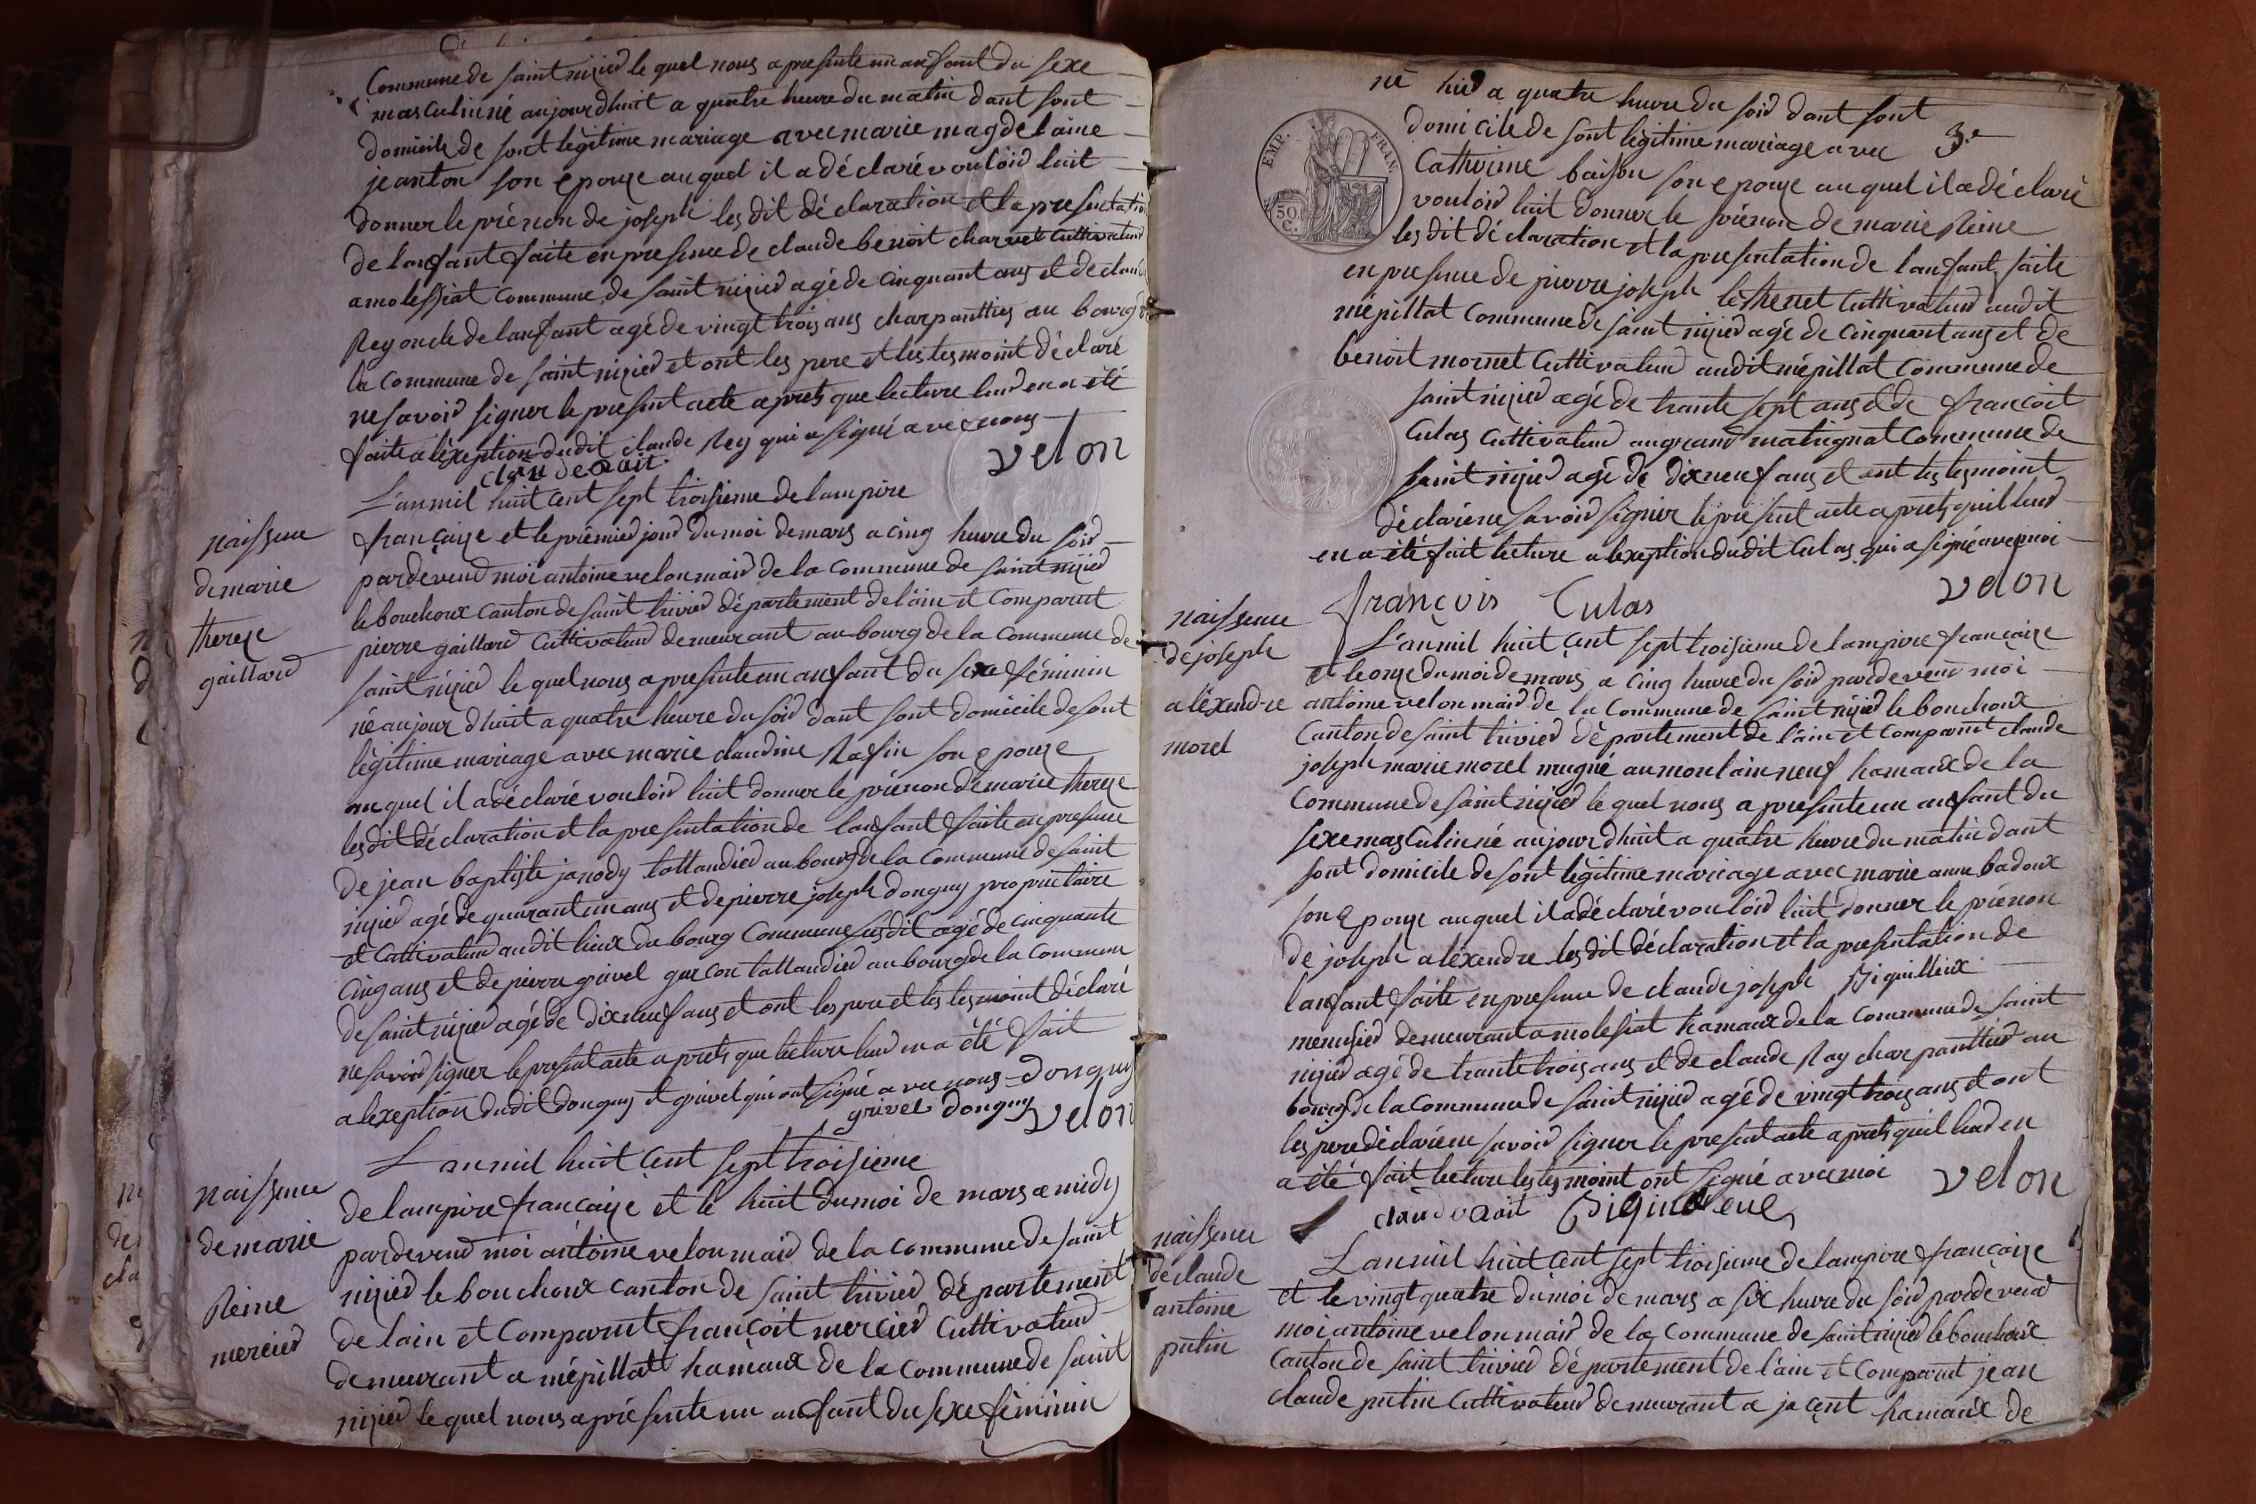 Commune de saint nizied le quel nous apresente un anfant du sexe
masculin né aujourdhuit a quatre heure du matin dant sont
domicile de sont légitime mariage avec marie magdelaine
jeanton son epouze auquel il a déclaré vouloid luit
donner le prénon de joseph lesdit déclaration et la presentation
de lanfant faite en presence de claude benoit charvet Cultivateud
a molessiat Commune de saint nizied agé de cinquant ans et de claude
Rey oncle de lanfant agé de vingt trois ans charpanttier au bourg de
la Commune de saint nizied et ont les pere et les tesmoint déclaré
ne savoid signer le present acte aprets que lecture leud en a été
faite a léxeption dudit claude Rey qui a signé avec nous
claudeRait velon
naissence
de marie
thereze
gaillard
L'an mil huit cent sept troisieme de lampire
françaize et le prémied jour du moi de mars a cinq heure du soid
pardevend moi antoine velon maid de la Commune de saint nizied
le bouchoux canton de saint trivied département de l'ain et Comparut
pierre gaillard Cultivateud demeurant au bourg de la Commune de
saint nizied le quel nous apresente un anfant du sexe féminin
né aujourdhuit a quatre heure du soid dant sont domicile de sont
légitime mariage avec marie claudine Rafin son epouze
auquel il a déclaré vouloid luit donner le prénon de marie thereze
lesdit déclaration et la presentation de lanfant faite en presence
de jean baptiste janody tallandied au bourg de la Commune de saint
nizied agé de quarant un ans et de pierre joseph donguy propriétaire
et Cultivateud audit lieux du bourg Commune susdit agé de cinquante
cinq ans et de pierre grivel garcon tallandied au bourg de la Commune
de saint nizied agé de dix neuf ans et ont les pere et les tesmoint déclaré
ne savoid signer le present acte aprets que lecture leud en a été fait
a léxeption dudit donguy et grivel qui ont signé avec nous donguy
grivel donguy velon
naissence
de marie
Reine
mercied
L'an mil huit cent sept troisieme
de lampire françaize et le huit du moi de mars a midy
pardevend moi antoine velon maid de la commune de saint
nizied le bouchoux canton de saint trivied département
de lain et Comparut françoit mercied Cultivateud
demeurant a mépillatt hamaux de la Commune de saint
nizied le quel nous aprésente un anfant du sexe féminin
né hied a quatre heure du soid dant sont
domicile de sont légitime mariage avec 3e
Catherine baisou son epouze auquel il a déclaré
vouloid luit donner le prénon de marie Reine
lesdit déclaration et la presentation de lanfant faite
en presence de pierre joseph léthenet Cultivateud audit
mépillat Commune de saint nizied agé de cinquant ans et de
benoit mornet Cultivateud audit mépillat Commune de
saint nizied agé de trante sept ans et de françoit
Culas Cultivateud au grand matrignat Commune de
saint nizied agé de dix neuf ans et ont les tesmoint
déclaré ne savoid signer le present acte aprets quil leud
en a été fait lecture a léxeption dudit Culas qui a signé avec moi
françois Culas velon
EMP. FRAN.
50 C.
naissence
de joseph
aléxendre
morel
L'an mil huit cent sept troisieme de lampire françaize
et le onze du moi de mars a cinq heure du soid pardevend moi
antoine velon maid de la Commune de saint nizied le bouchoux
Canton de saint trivied département de l'ain et Comparut claude
joseph marie morel mugné au moulain neuf hamaux de la
Commune de saint nizied le quel nous apresente un anfant du
sexe masculin né aujourdhuit a quatre heure du matin dant
sont domicile de sont légitime mariage avec marie anne badoux
son epouze auquel il a déclaré vouloid luit donner le prénon
de joseph aléxendre lesdit déclaration et la presentation de
lanfant faite en presence de claude joseph Piguilleux
menusied demeurant a molesiat hamaux de la Commune de saint
nizied agé de trante trois ans et de claude Ray charpanttied au
bourg de la Commune de saint nizied agé de vingt trois ans et ont
les pere déclaré ne savoid signer le present acte aprets quil leud en
a été fait lecture les tesmoint ont signé avec moi velon
claudeRait
naissence
de claude
antoine
putin
L'an mil huit cent sept troisieme de lampire françaize
et le vingt quatre du moi de mars a six heure du soid pardevend
moi antoine velon maid de la Commune de saint nizied le bouchoux
Canton de saint trivied département de l'ain et Comparut jean
claude putin Cultivateud demeurant a jacent hamaux de